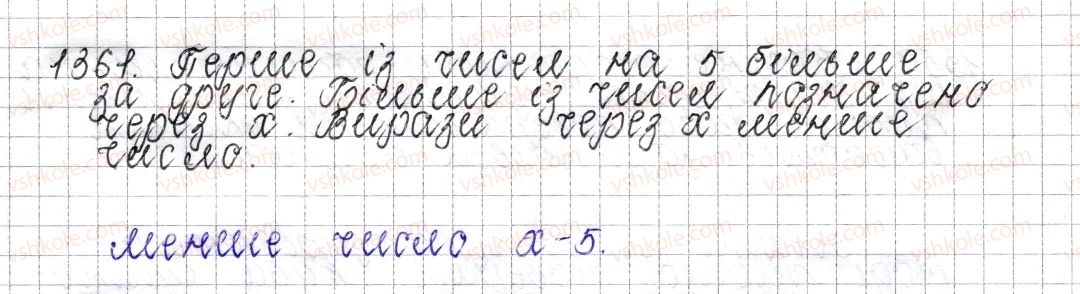 1361. Перше із чисел на 5 більше
за друге. Більше із чисел позначено
через х. Вирази через х менше
число.
менше число х - 5.